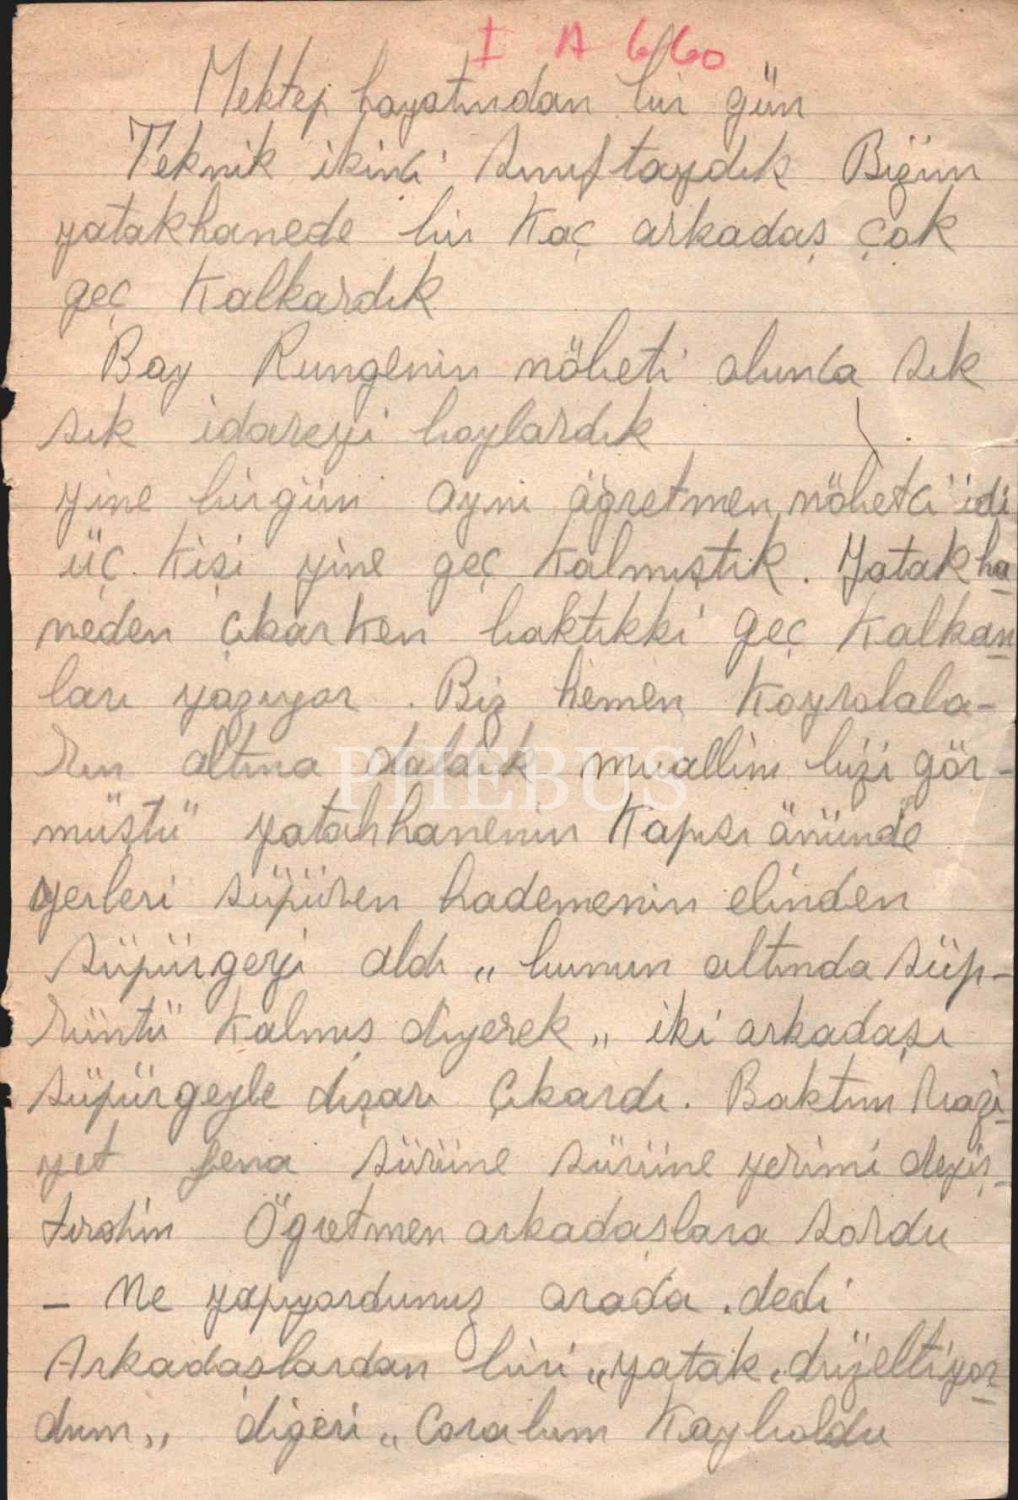 I A 660
Mektep hayatından bir gün
Teknik ikinci sınıftaydık Bizim
yatakhanede bir kaç arkadaş çok
geç kalkardık
Bay Rungenin nöbeti olunca sık
sık idareyi boylardık
yine birgün ayni öğretmen nöbetci idi
üç kişi yine geç kalmıştık. Yatakha
neden çıkarken baktıkki geç kalkan
ları yazıyor. Biz hemen
altına daldık muallim bizi gör-
müştü yatakhanenin kapısı önünde
yerleri süpüren hademenin elinden
süpürgeyi aldı „ bunun altında süp-
rüntü kalmış diyerek „ iki arkadaşı
süpürgeyle dışarı çıkardı. Baktım vazi-
yet fena sürüne sürüne yerimi deyiş-
tirdim Öğretmen arkadaşlara sordu
- Ne yapıyordunuz orada. dedi
Arkadaslardan biri „yatak düzeltiyor
dum„ digeri „Corabım kayboldu
PHEBUS